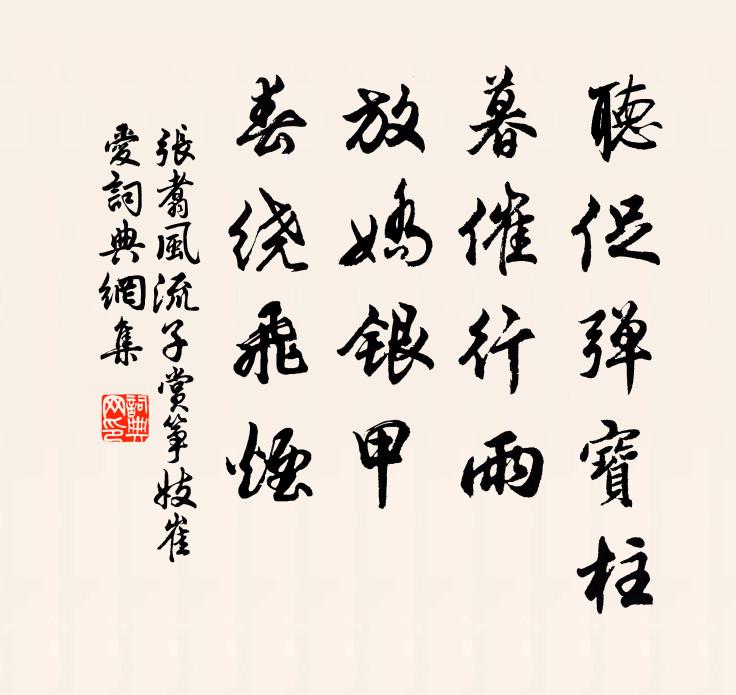 聽促弹寶柱
暮催行雨
放嬌銀甲
春绕飛煙
張翥風流子賞箏妓崔
愛詞典網集
詞典
网印